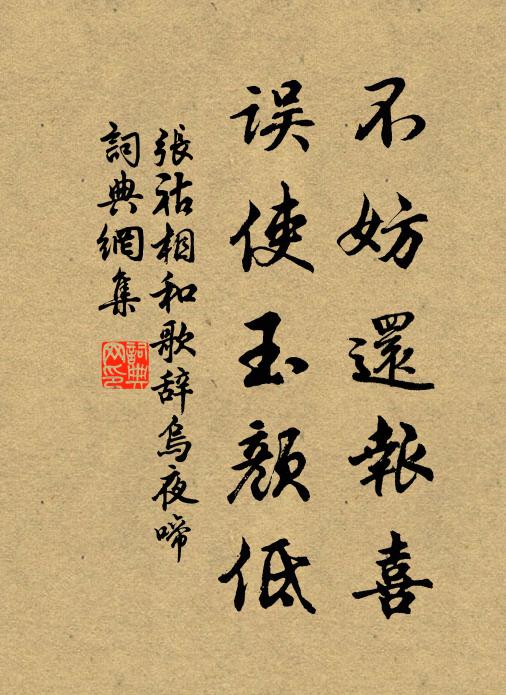 不妨還報喜
误使玉顏低
張祜相和歌辞烏夜啼
詞典網集
詞典網印